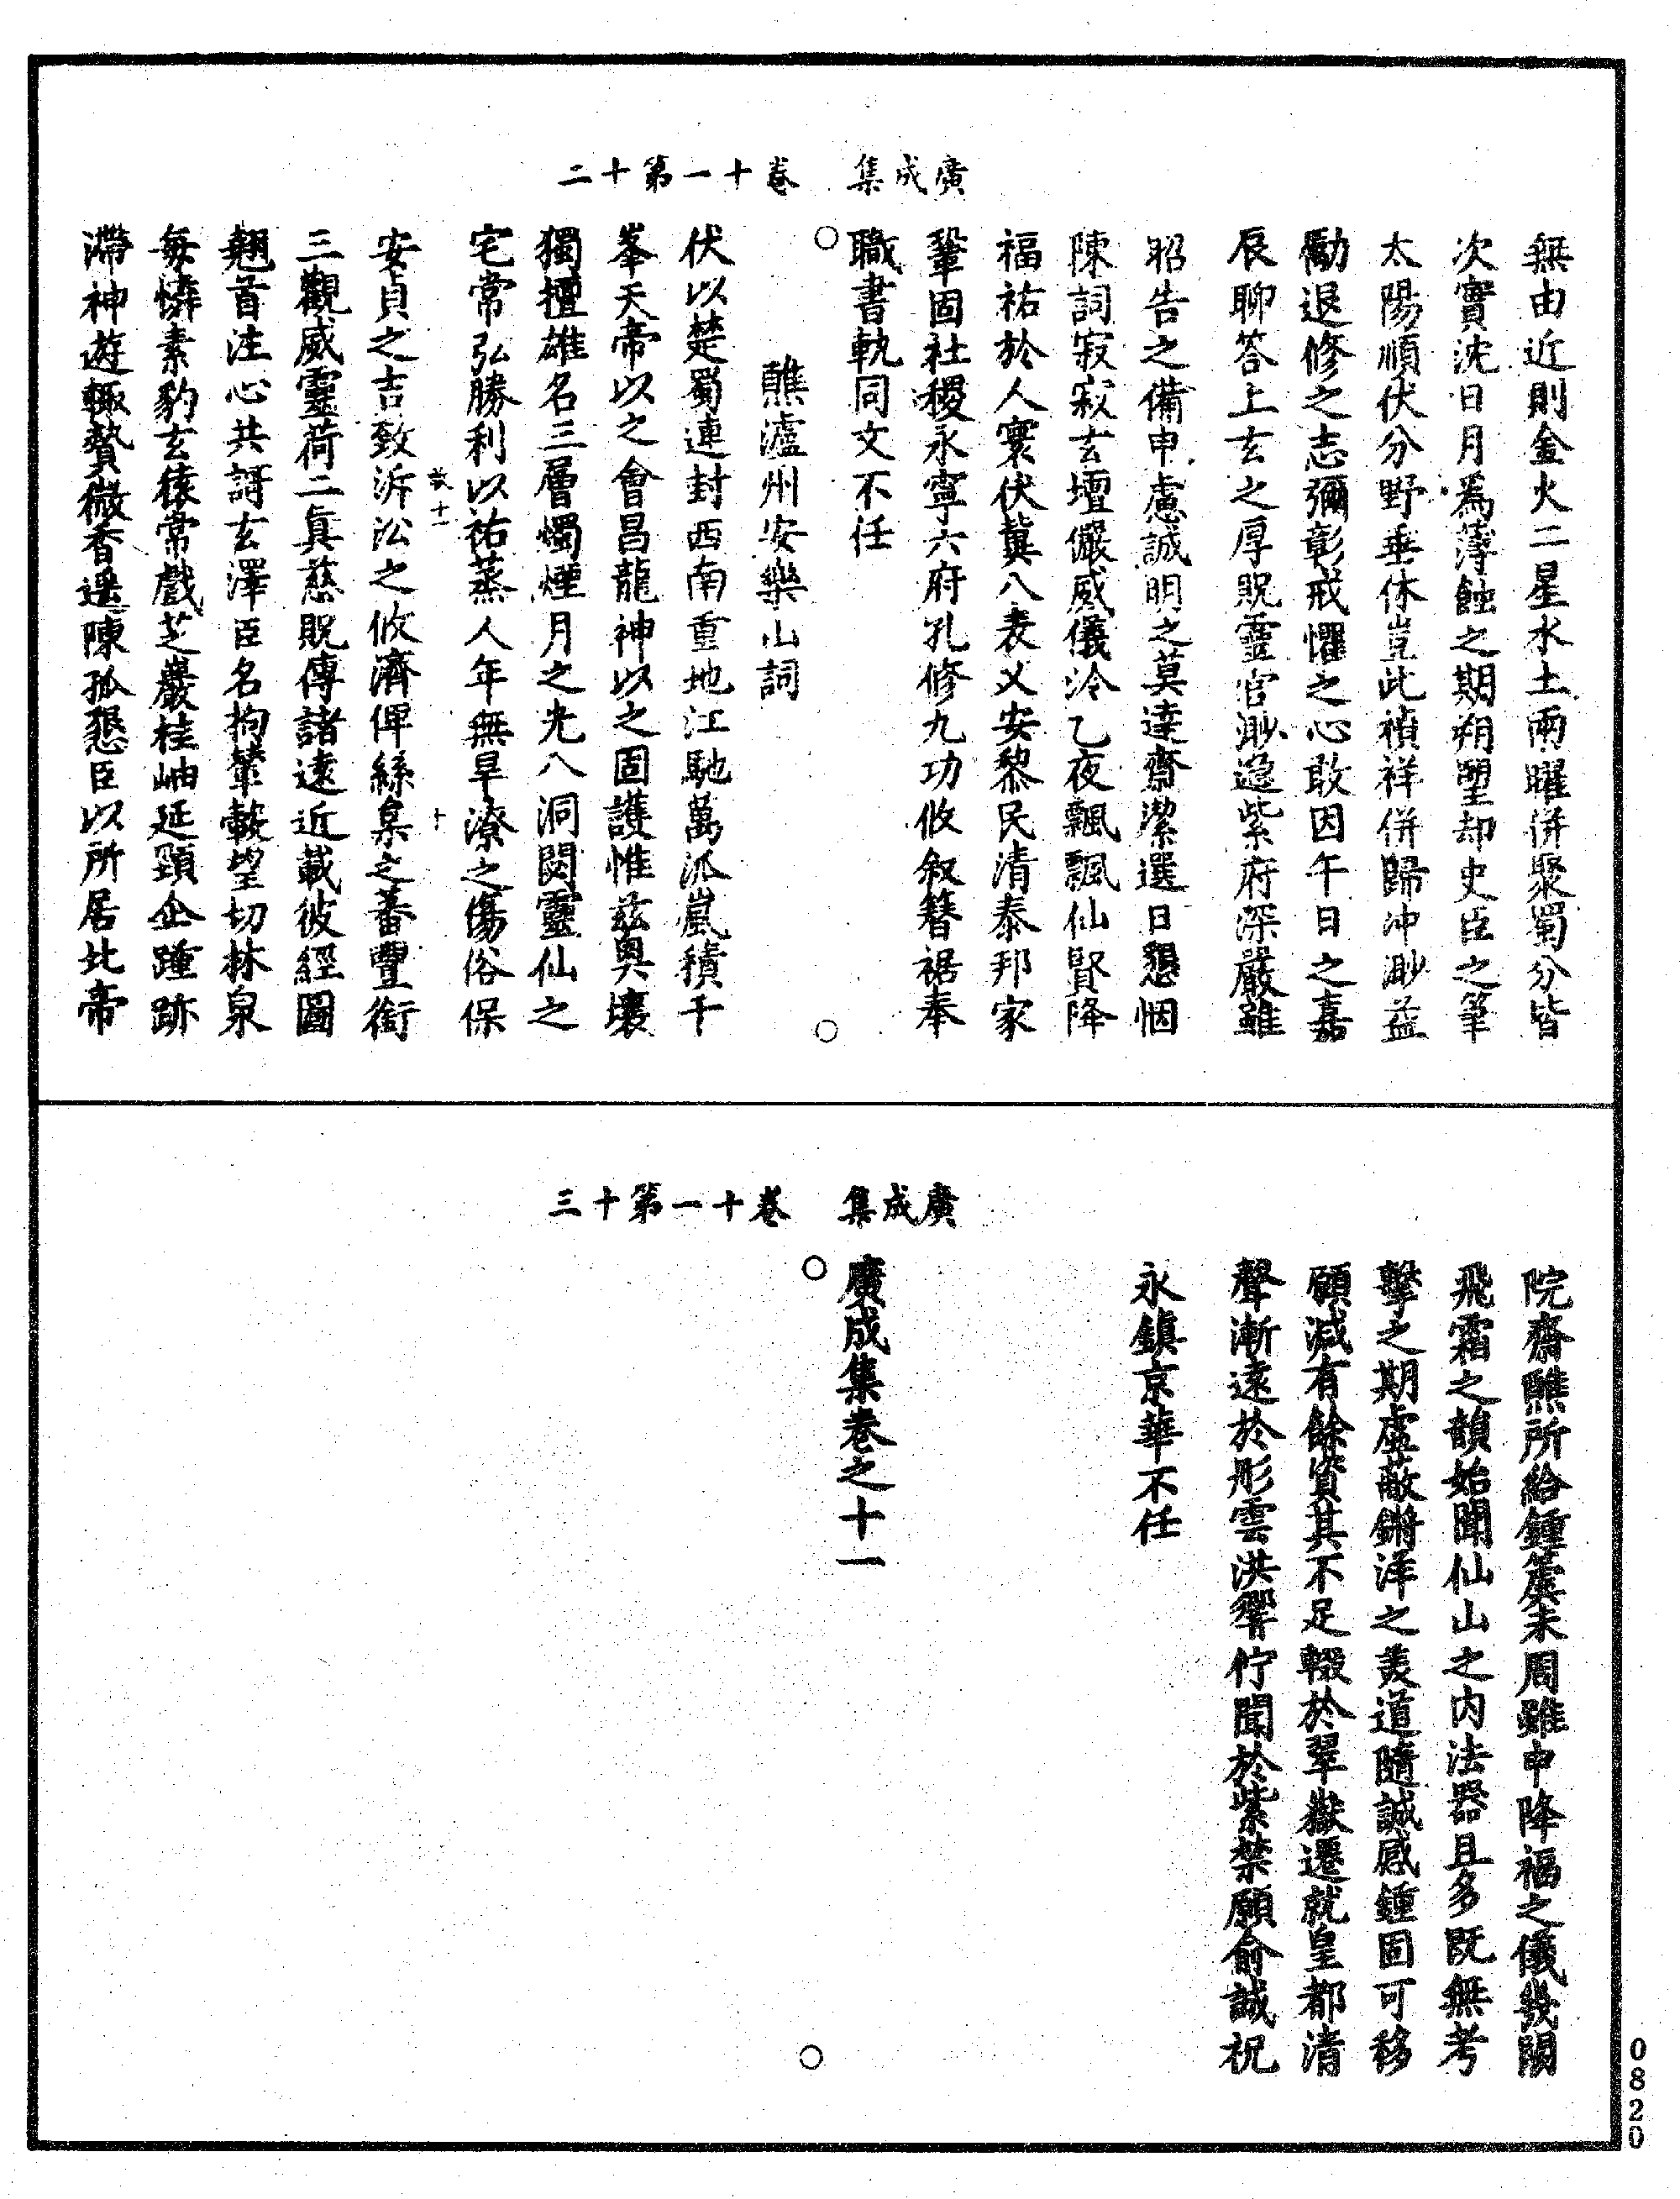 廣成集　卷十一第十二
無由近則金火二星水土兩曜併聚蜀分皆
次實沈日月為薄蝕之期朔望却史臣之筆
太陽順伏分野垂休豈此禎祥併歸沖渺益
勵退修之志彌彰戒懼之心敢因午日之嘉
辰聊答上玄之厚貺靈官渺邈紫府深嚴雖
昭告之備申慮誠明之莫達齋潔選日懇悃
陳詞寂寂玄壇儼威儀泠乙夜飄飄仙賢降
福祐於人寰伏冀八表乂安黎民清泰邦家
鞏固社稷永寧六府孔修九功攸叙簪裾奉
職書軌同文不任
醮瀘州安樂山詞
伏以楚蜀連封西南重地江馳萬派嵐積千
峯天帝以之會昌龍神以之固護惟茲奧壤
獨擅雄名三層燭煙月之光八洞閟靈仙之
宅常弘勝利以祐蒸人年無旱潦之傷俗保
安貞之吉致泝沿之攸濟俾絲枲之蕃豐銜
三觀威靈荷二真慈貺傳諸遠近載彼經圖
翹首注心共謌玄澤臣名拘輦轂望切林泉
每憐素豹玄猿常戲芝巖桂岫延頸企踵跡
滯神遊輒贄微香遥陳孤懇臣以所居北帝
廣成集　卷十一第十三
院齋醮所給鍾簴未周雖申降福之儀幾闕
飛霜之韻始聞仙山之內法器且多既無考
擊之期虛蔽鏘洋之羙道隨誠感鍾固可移
願減有餘資其不足輟於翠嶽遷就皇都清
聲漸遠於彤雲洪響佇聞於紫禁願俞誠祝
永鎮京華不任
廣成集卷之十一
0820